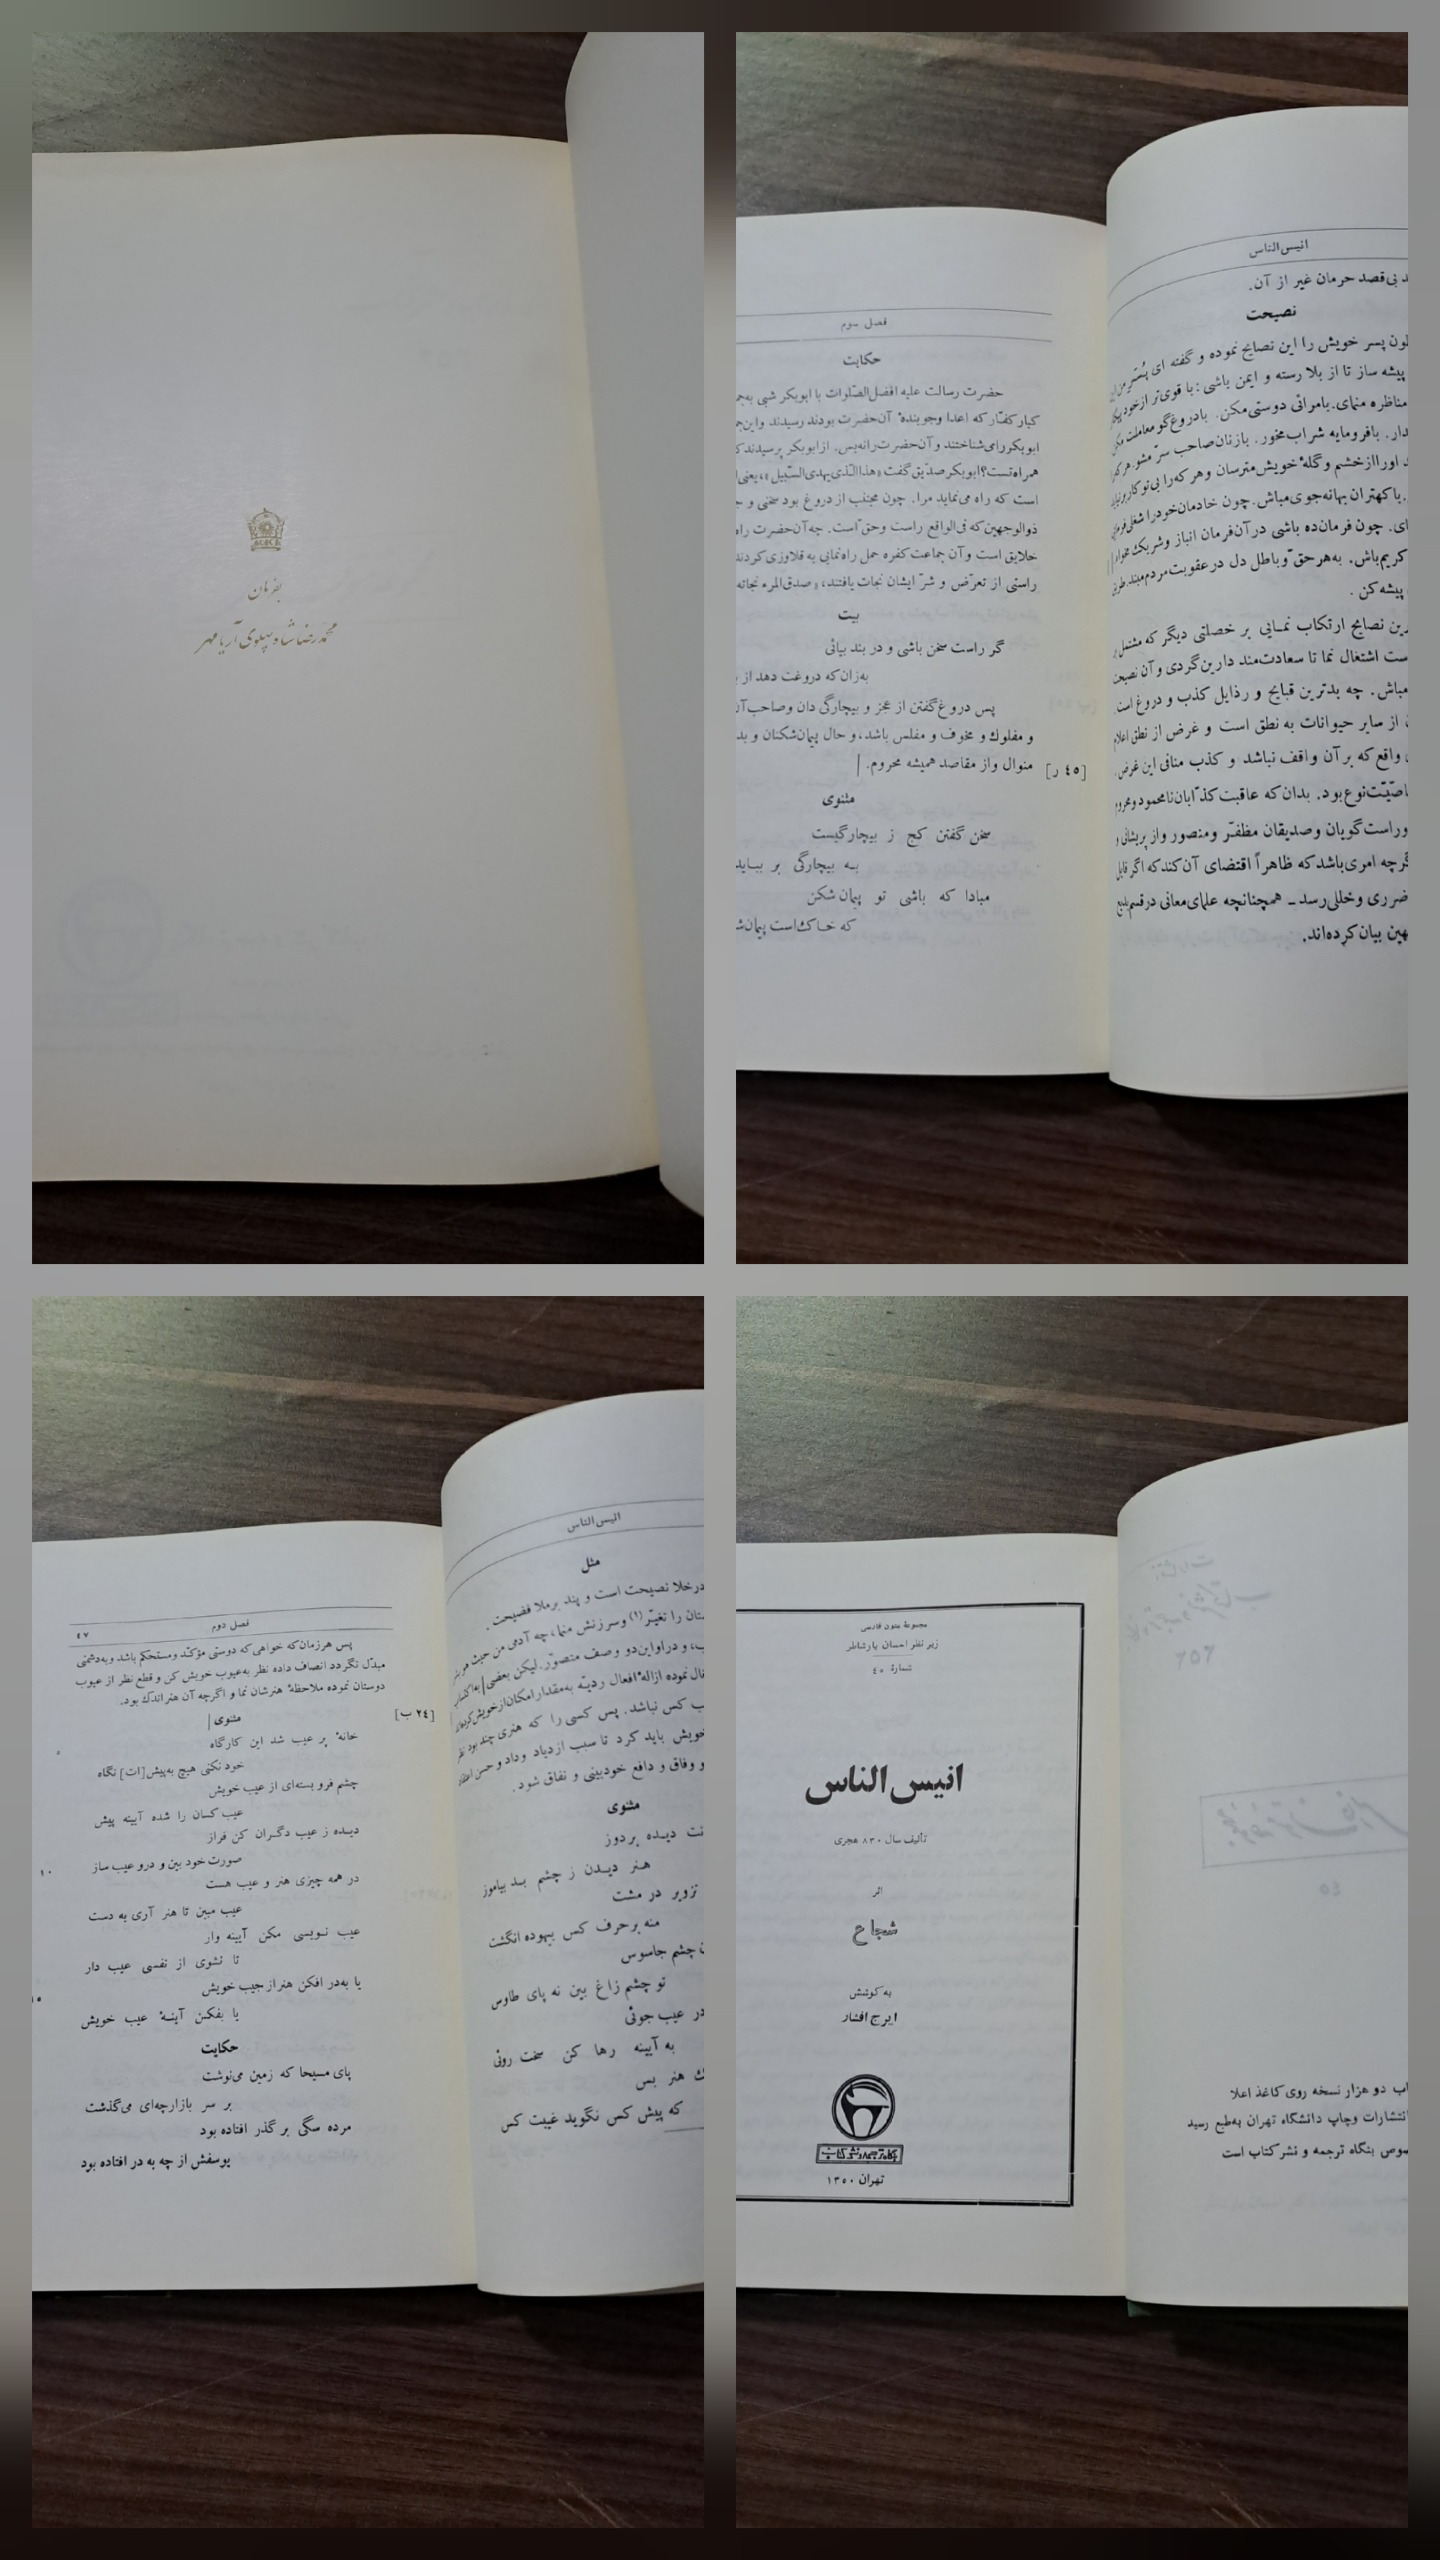 بفرمان
محمدرضا شاه پهلوی آریامهر
انیس‌الناس
بی‌قصد حرمان غیر از آن.
نصیحت
پسر خویش را این نصایح نموده و گفته ای پسر
پیشه ساز تا از بلا رسته و ایمن باشی: با قوی‌تر از خود
مناظره منمای. بامرائی دوستی مکن. بادروغ‌گو معاملت مکن
دار. بافرومایه شراب مخور. بازنان صاحب سرّ مشو. هر که
اورا از خشم و گلهٔ خویش مترسان وهر که را بی‌تو کار برنیاید
باکهتران بهانه‌جوی مباش. چون خادمان خود را شغلی فرمایی
ای. چون فرمان‌ده باشی در آن فرمان انباز وشریک مخواه
کریم باش. به‌هر حقّ وباطل دل در عقوبت مردم مبند. طریق
پیشه کن.
نصایح ارتکاب نمـایی بر خصلتی دیگر که مشتمل بر
است اشتغال نما تا سعادت‌مند دارین گردی و آن نصیحت
مباش. چه بدترین قبایح و رذایل کذب و دروغ است
از سایر حیوانات به نطق است و غرض از نطق اعلام
واقع که بر آن واقف نباشد و کذب منافی این غرض
خاصّیّت نوع بود. بدان که عاقبت کذّابان نامحمود ومحروم
وراست گویان وصدیقان مظفّر ومنصور واز پریشانی و
گرچه امری باشد که ظاهراً اقتضای آن کند که اگر قایل
ضرری وخللی رسد ــ همچنانچه علمای معانی در قسم بدیع
بیان کرده‌اند.
فصل سوم
حکایت
حضرت رسالت علیه افضل الصّلوات با ابوبکر شبی به
کبار کفّار که اعدا وجویندهٔ آن حضرت بودند رسیدند واین
ابوبکر را می‌شناختند و آن حضرت را نه‌بس. از ابوبکر پرسیدند
همراه تست؟ ابوبکر صدّیق گفت «هذا الّذی یهدی السّبیل»، یعنی
است که راه می‌نماید مرا. چون مجتنب از دروغ بود سخنی و
ذوالوجهین که فی‌الواقع راست وحقّ است. چه آن حضرت راه
خلایق است وآن جماعت کفره حمل راه‌نمایی به قلاوزی کردند
راستی از تعرّض و شرّ ایشان نجات یافتند، «صدق المرء نجاته
بیت
گر راست سخن باشی و در بند بیائی
به‌زان که دروغت دهد از
پس دروغ گفتن از عجز و بیچارگی دان وصاحب آن
و مفلوك و مخوف و مفلس باشد، و حال پیمان‌شکنان و
[٤٥ ر] منوال واز مقاصد همیشه محروم. |
مثنوی
سخن گفتن کج ز بیچارگیست
بـه بیچارگی بر ببـاید
مبادا که باشی تو پیمان شکن
که خـاك است پیمان
انیس‌الناس
مثل
درخلا نصیحت است و پند برملا فضیحت.
را تغیّر (۱) وسرزنش منما، چه آدمی من حیث
و دراو این دو وصف متصوّر. لیکن بعضی |
نموده ازالهٔ افعال ردیّه به‌مقدار امکان از خویش کرده‌اند
کس نباشد. پس کسی را که هنری چند بود نظر
خویش باید کرد تا سبب ازدیاد وداد و حسن اعتقاد
و وفاق و دافع خودبینی و نفاق شود.
مثنوی
دیـده بردوز
هنر دیـدن ز چشم بـد بیاموز
تزویر در مشت
منه بر حرف کس بیهوده انگشت
چشم جاسوس
تو چشم زاغ بین نه پای طاوس
در عیب جوئی
به آیینه رها کن سخت روئی
هنر بس
که پیش کس نگوید غیبت کس
فصل دوم
٤٧
پس هرزمان که خواهی که دوستی مؤکّد ومستحکم باشد وبه‌دشمنی
مبدّل نگردد انصاف داده نظر به‌عیوب خویش کن و قطع نظر از عیوب
دوستان نموده ملاحظهٔ هنرشان نما و اگرچه آن هنر اندك بود.
[٢٤ ب] مثنوی |
خانهٔ پر عیب شد این کارگاه
٥
خود نکنی هیچ به‌پیش[ات] نگاه
چشم فرو بسته‌ای از عیب خویش
عیب کسان را شده آیینه پیش
دیـده ز عیب دگـران کن فراز
صورت خود بین و درو عیب ساز
١٠
در همه چیزی هنر و عیب هست
عیب مبین تا هنر آری به دست
عیب نـویسی مکن آیینه وار
تا نشوی از نفسی عیب دار
یا به‌در افکن هنر از جیب خویش
١٥
یا بفکـن آینـهٔ عیب خویش
حکایت
پای مسیحا که زمین می‌نوشت
بر سر بازارچه‌ای می‌گذشت
مرده سگی بر گذر افتاده بود
یوسفش از چه به در افتاده بود
دو هزار نسخه روی کاغذ اعلا
انتشارات وچاپ دانشگاه تهران به‌طبع رسید
بنگاه ترجمه و نشر کتاب است
مجموعهٔ متون فارسی
زیر نظر احسان یارشاطر
شمارهٔ ٤٥
انیس الناس
تألیف سال ٨٣٠ هجری
اثر
شجاع
به کوشش
ایرج افشار
بنگاه ترجمه و نشر کتاب
تهران ١٣٥٠